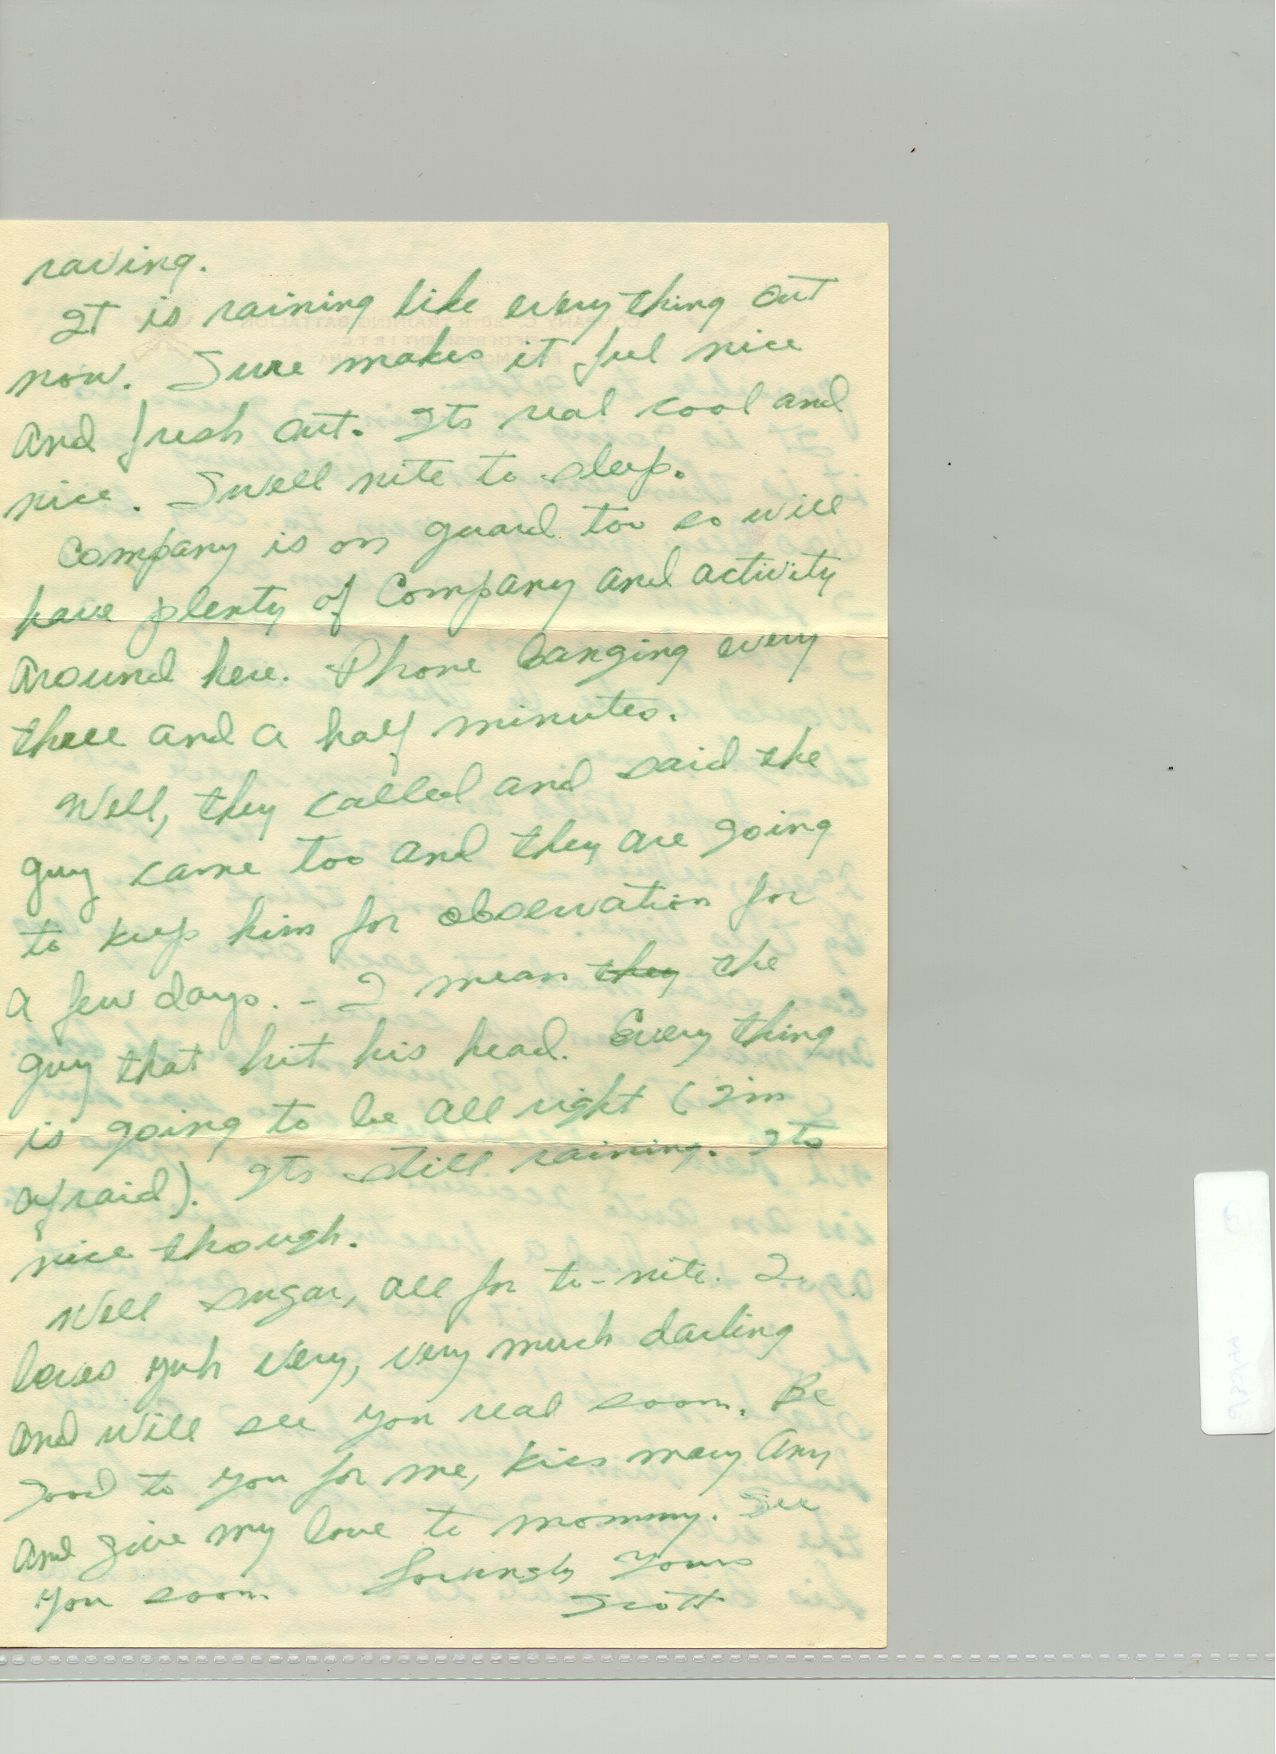 raving.
It is raining like every thing out
now. Sure makes it feel nice
and fresh out. Its real cool and
nice. Swell nite to sleep.
Company is on guard too so will
have plenty of Company and activity
around here. Phone banging every
three and a half minutes.
Well, they called and said the
guy came too and they are going
to keep him for observation for
a few days. - I mean they the
guy that hit his head. Every thing
is going to be all right (I'm
afraid). Its still raining. Its
nice though.
Well sugar, all for to-nite. I
loves yuh very, very much darling
and will see you real soon. Be
good to you for me, kiss mary Ann
and give my love to mommy. See
you soon Lovingly Yours
Scott